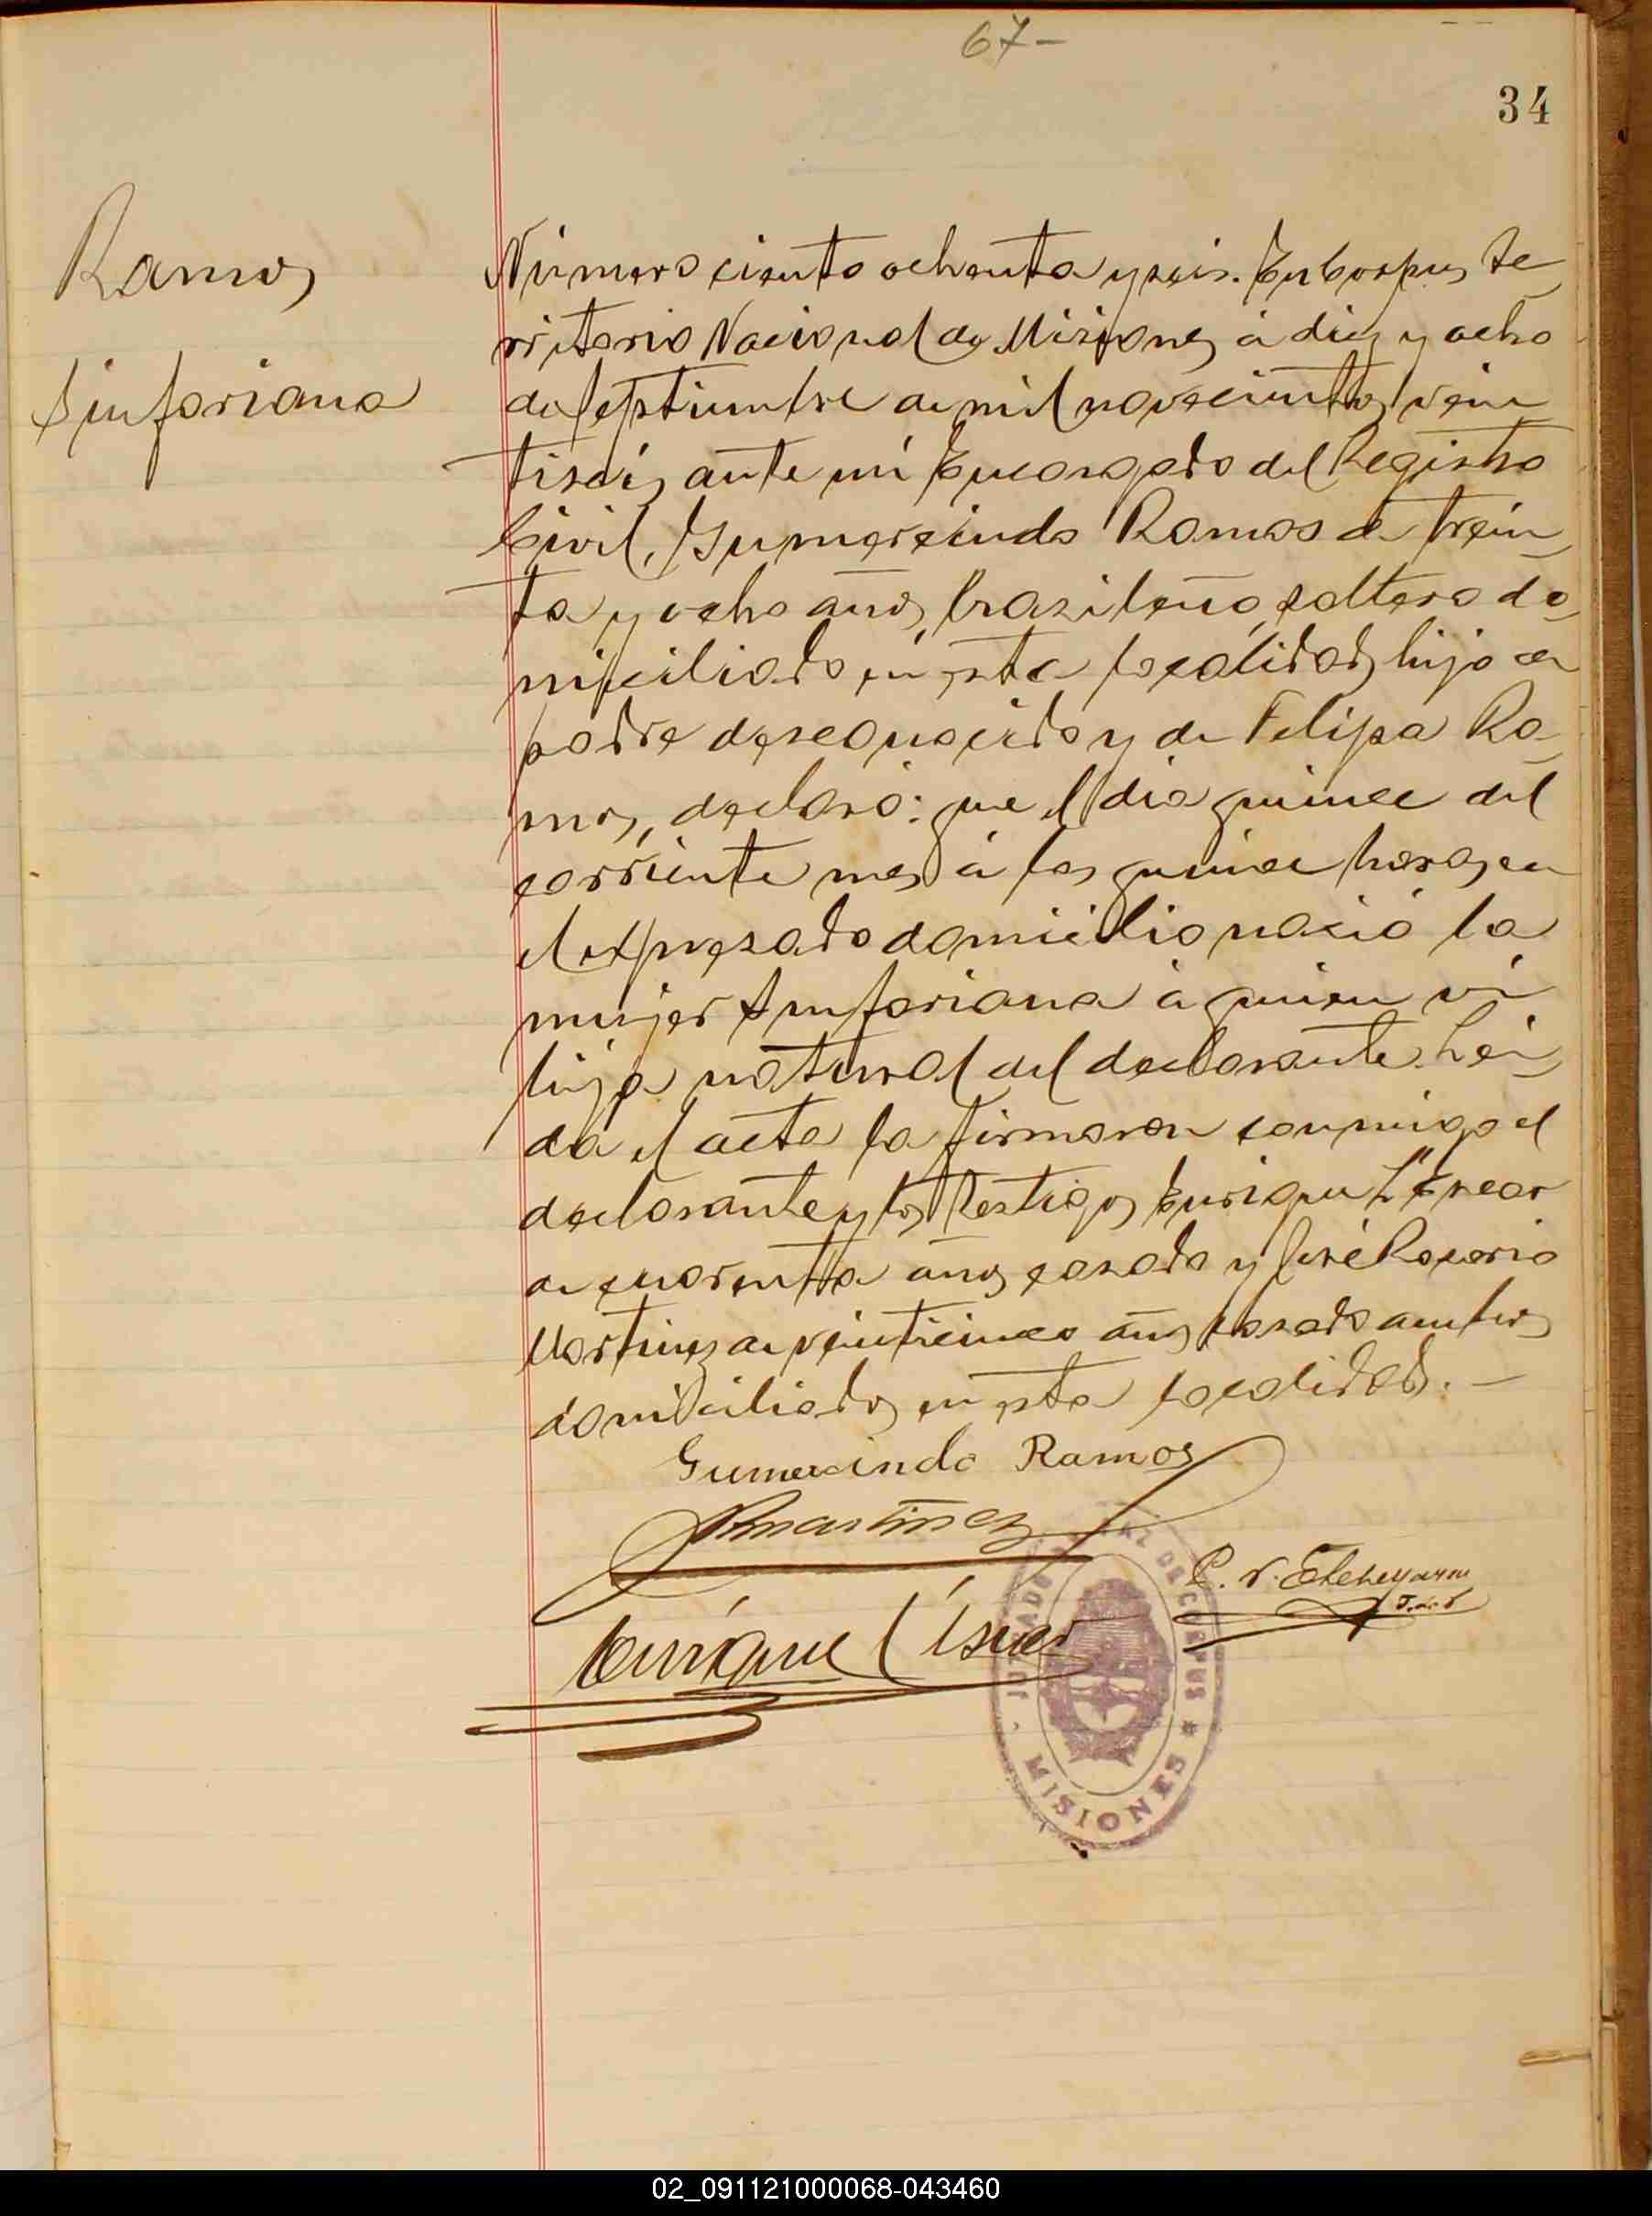 67-
34
Ramos
Sinforiana
Número ciento ochenta y seis. En Corpus Te_
rritorio Nacional de Misiones á diez y ocho
de Septiembre de mil novecientos vein
tiseis ante mi Encargado del Registro
Civil, Gumercindo Ramos de trein_
ta y ocho años, brasileño, soltero do_
miciliado en esta localidad, hijo de
padre desconocido y de Felipa Ra_
mos, declaró: que el dia quince del
corriente mes á las quince horas, en
el expresado domicilio nació la
mujer Sinforiana á quien vi
hija natural del declarante. Lei_
da el acta la firmaron conmigo el
declarante y los testigos Enrique Líscar
de cuarenta años casado y José Rosario
Martinez de veinticinco años casado ambos
domiciliados en esta localidad. —
Gumercindo Ramos
Rmartinez
P. V. Etcheyarm
Enrique Líscar
JUZGADO DE PAZ DE CORPUS
MISIONES
02_091121000068-043460